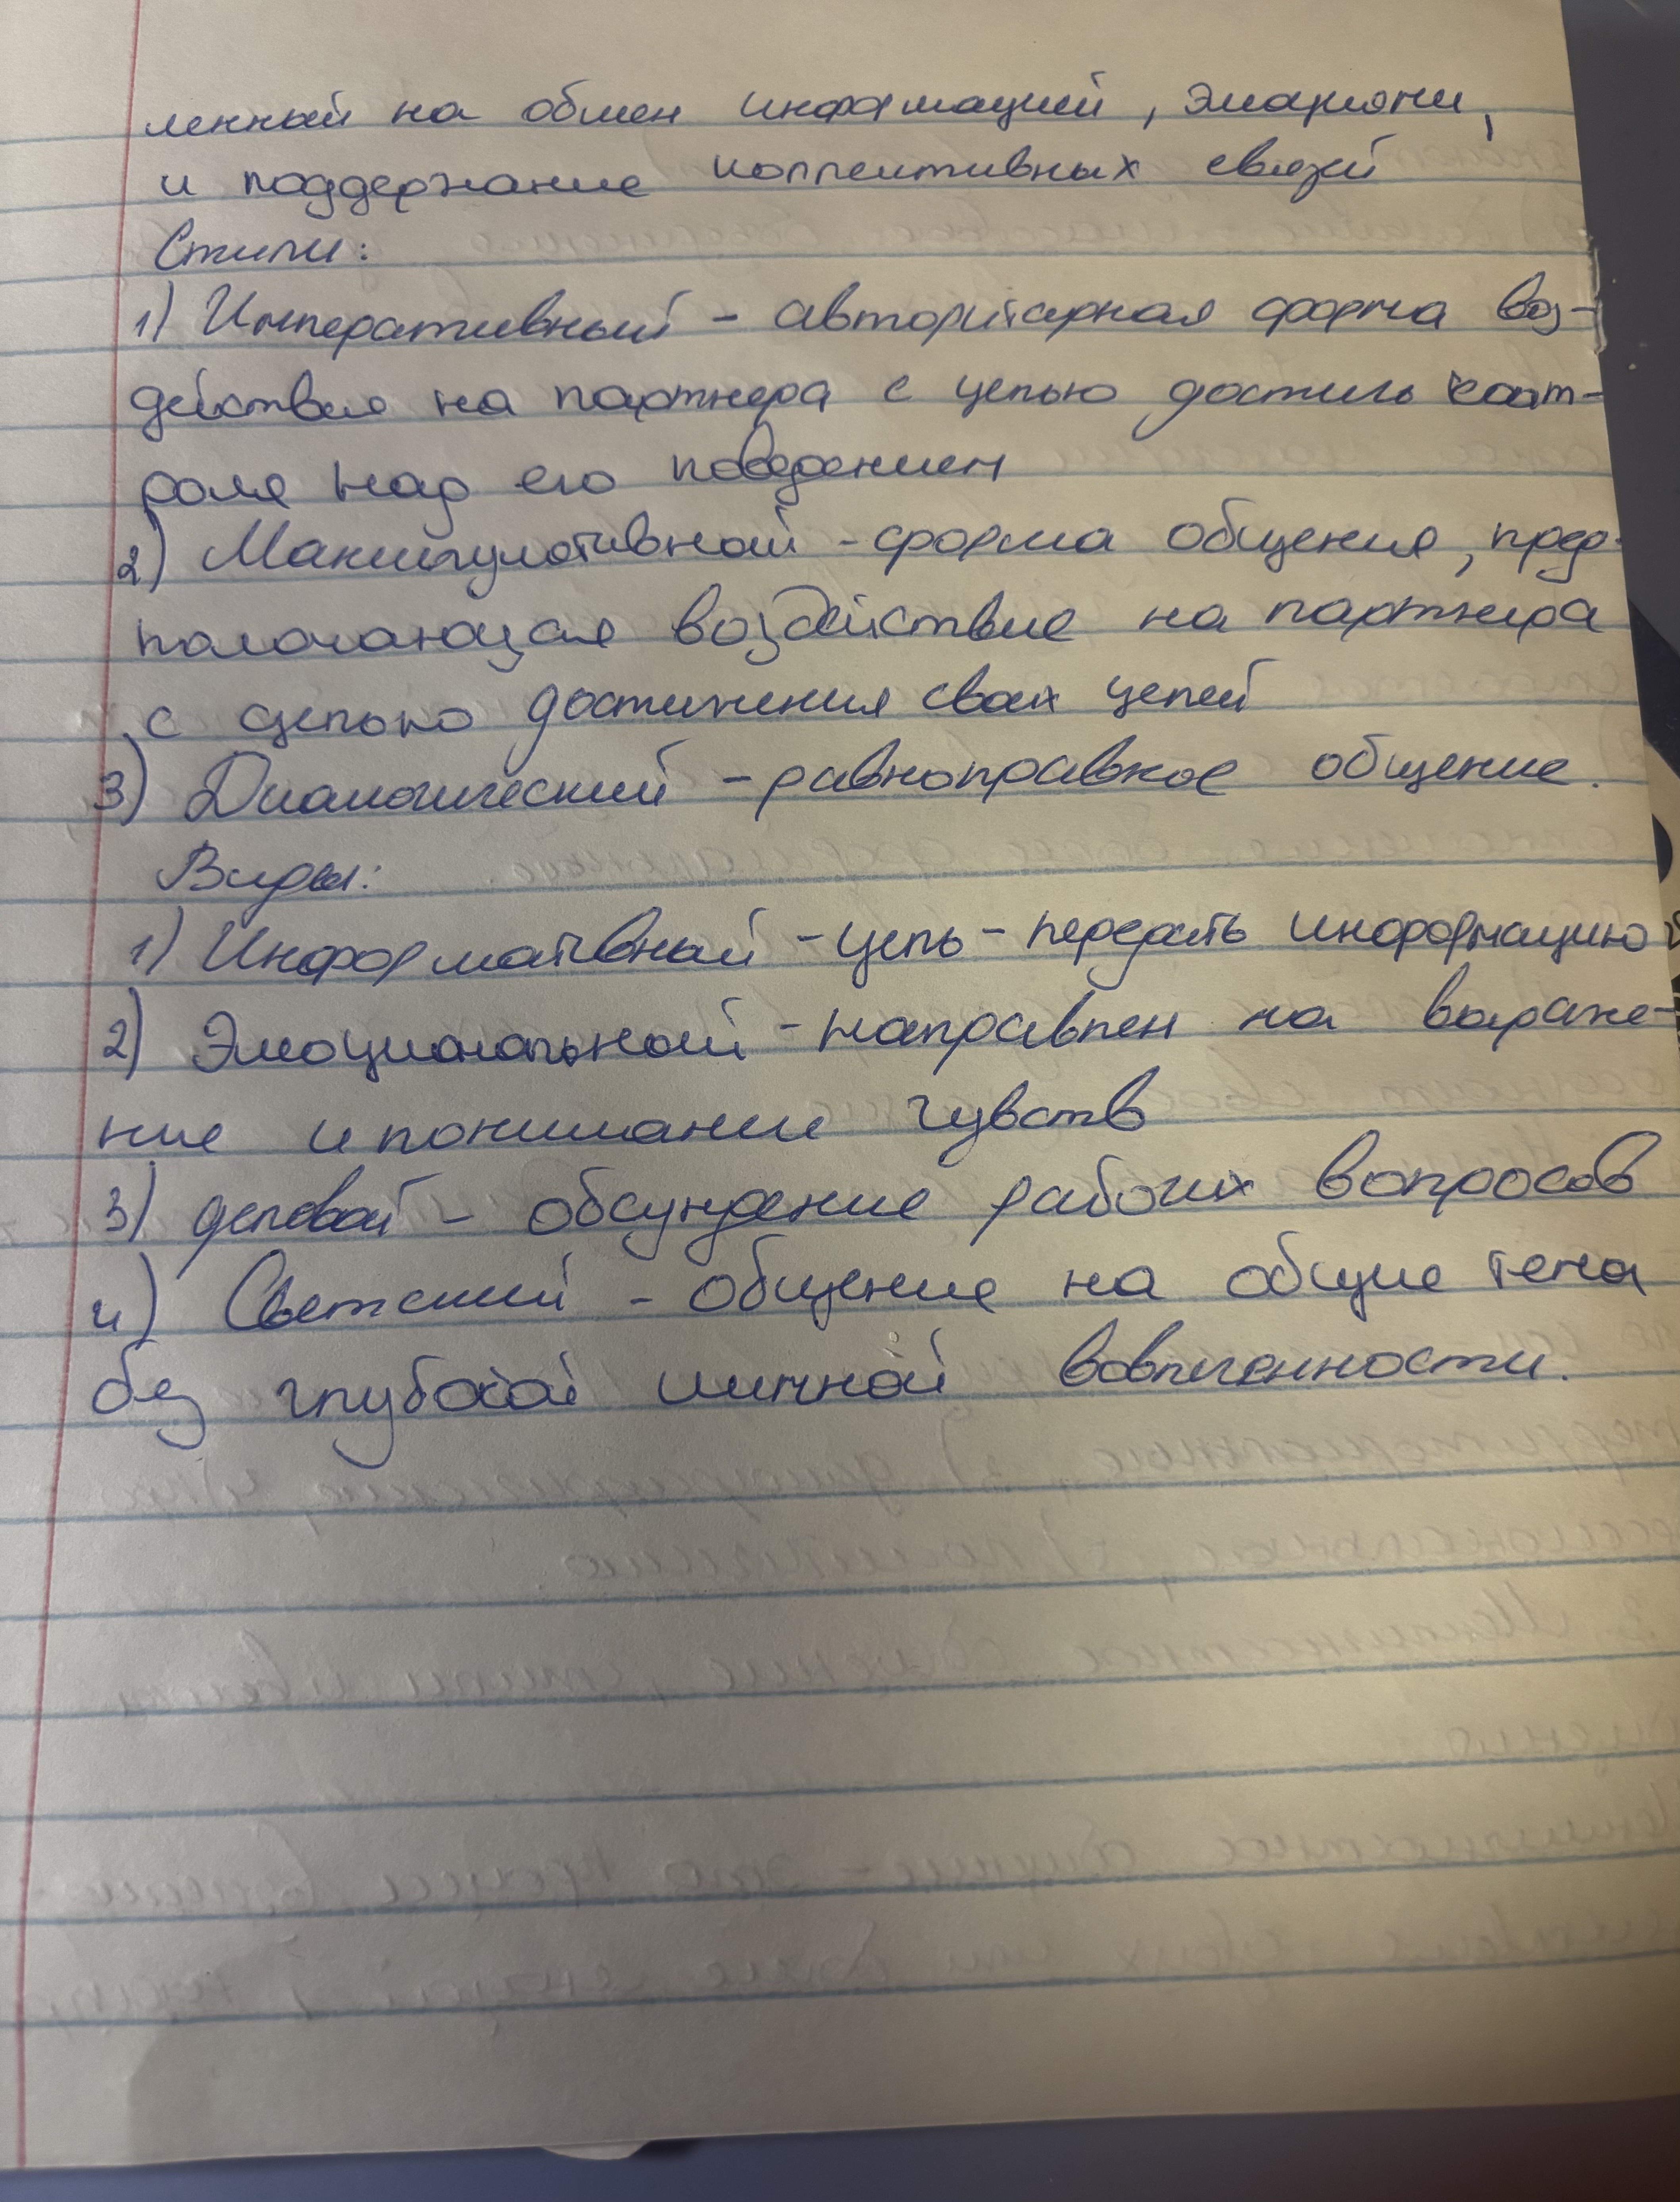 ленный на обмен информацией, эмоциями,
и поддержание коллективных связей
Стили:
1) Императивный - авторитарная форма воз-
действия на партнера с целью достичь конт-
роля над его поведением
2) Манипулятивный - форма общения, пред-
полагающая воздействие на партнера
с целью достижения своих целей
3) Диалогический - равноправное общение.
Виды:
1) Информативный - цель - передать информацию
2) Эмоциональный - направлен на выраже-
ние и понимание чувств
3) деловой - обсуждение рабочих вопросов
4) Светский - общение на общие тема
без глубокой личной вовлеченности.